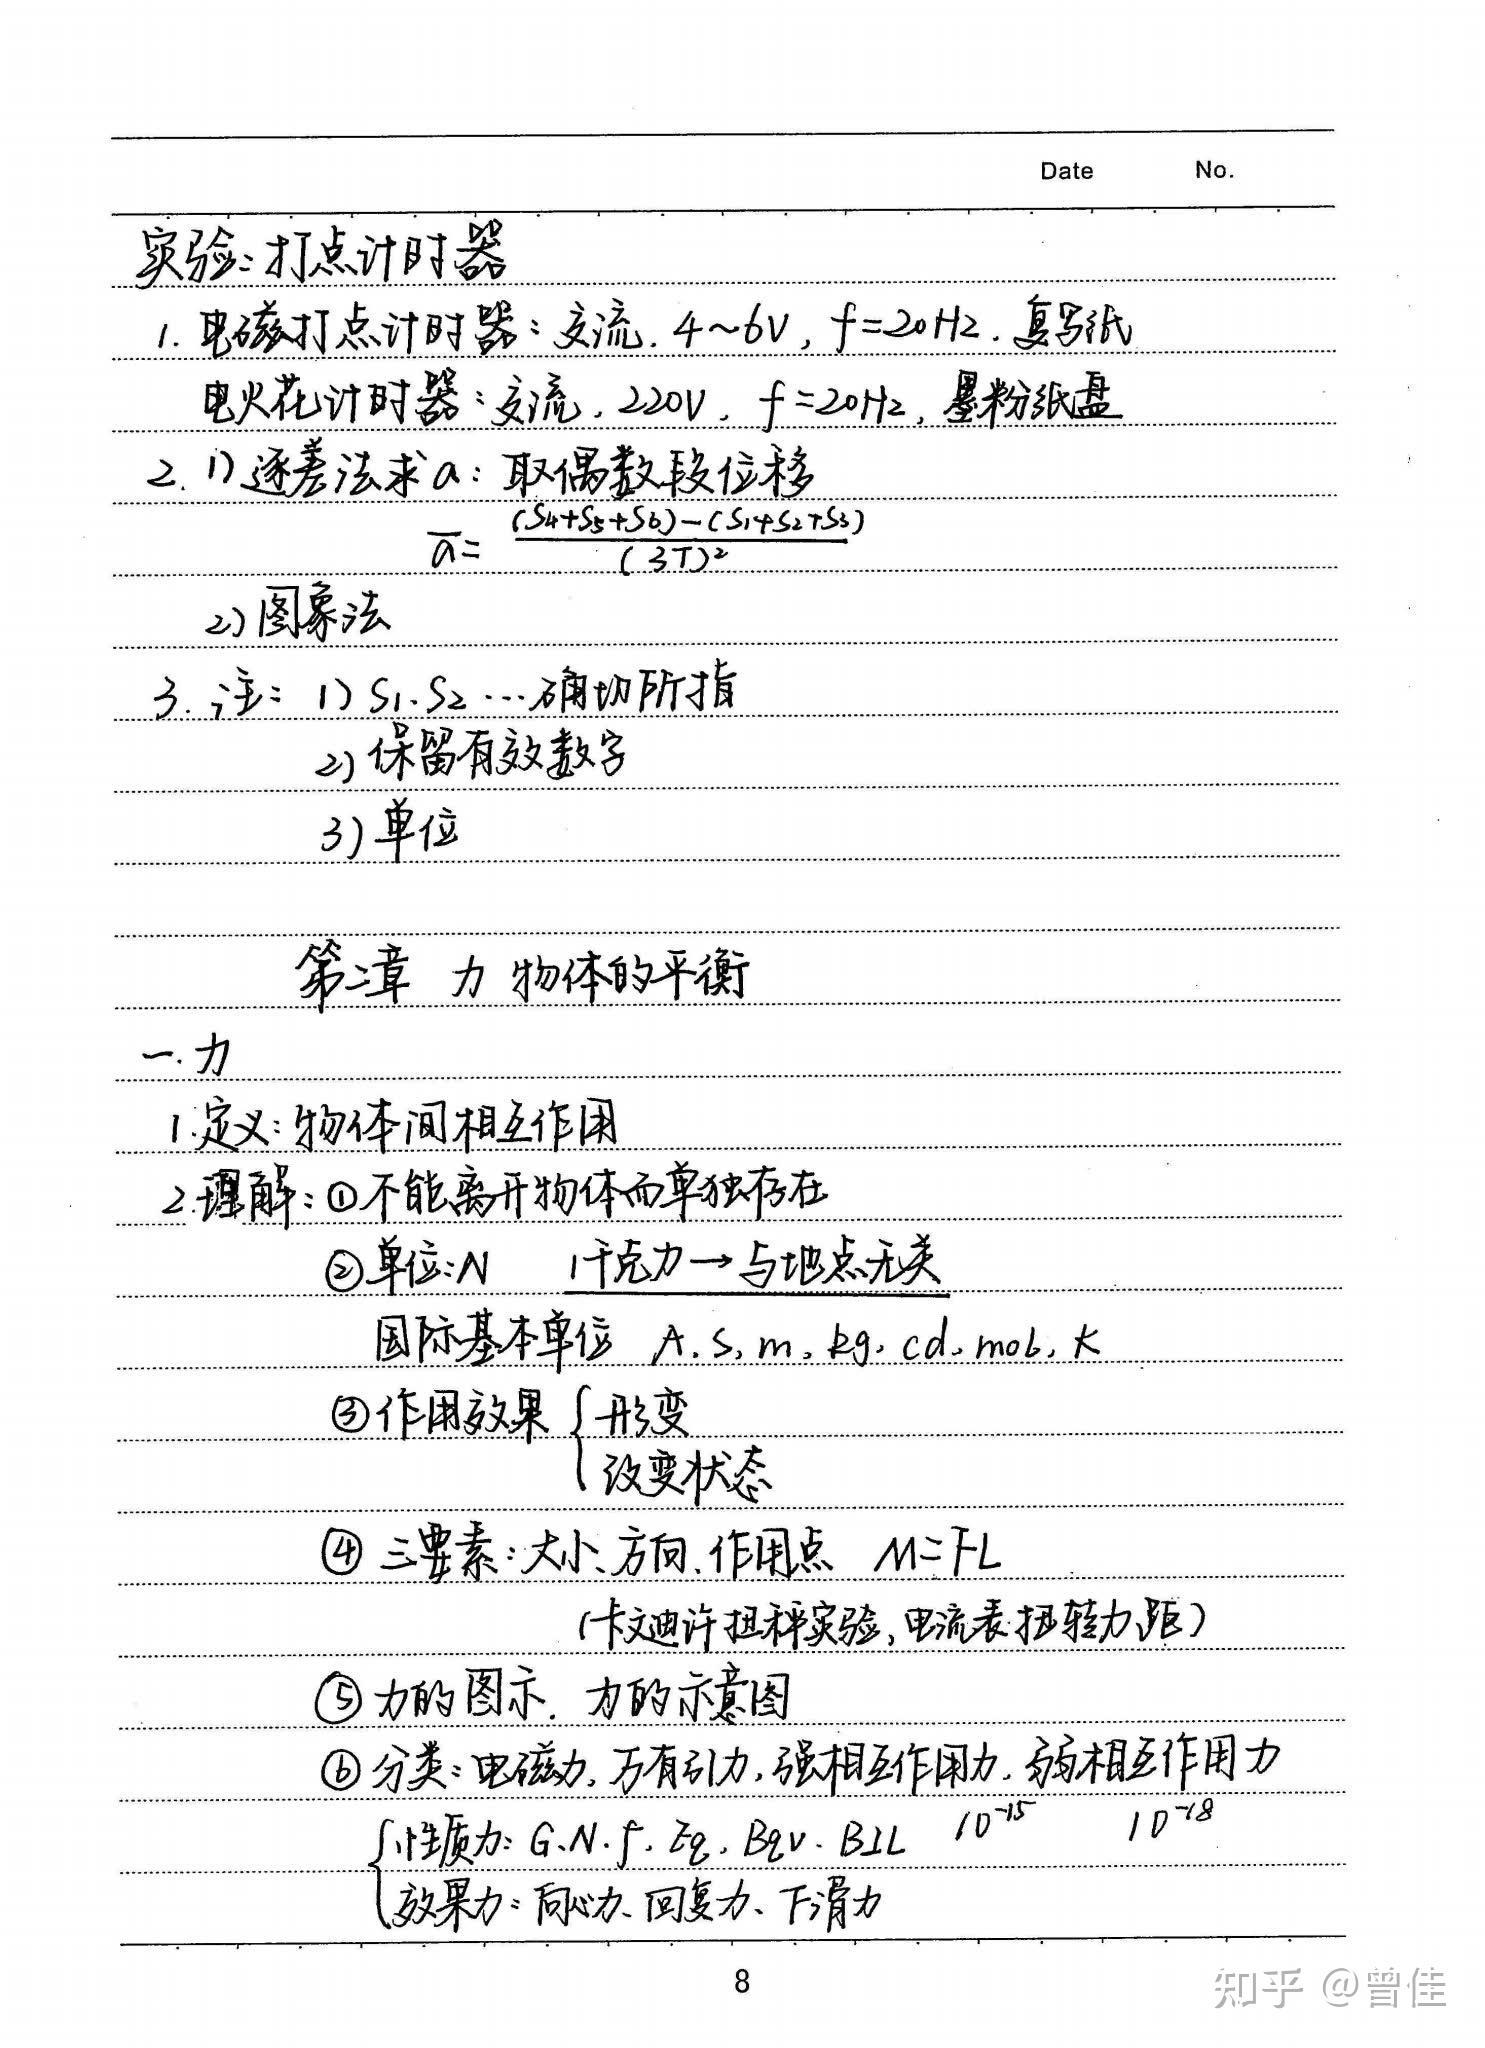 Date No.
实验:打点计时器
1. 电磁打点计时器:交流. 4~6V, f=20Hz. 复写纸
电火花计时器:交流. 220V. f=20Hz, 墨粉纸盘
2. 1)逐差法求a: 取偶数段位移
a̅= (S4+S5+S6)-(S1+S2+S3) / (3T)²
2)图象法
3. 注: 1)S1.S2...确切所指
2)保留有效数字
3)单位
第二章 力 物体的平衡
一.力
1.定义:物体间相互作用
2.理解:①不能离开物体而单独存在
②单位:N 1千克力→与地点无关
国际基本单位 A.S、m、kg、cd、mol、K
③作用效果 { 形变
改变状态
④ 三要素:大小、方向、作用点 M=FL
(卡文迪许扭秤实验,电流表扭转力距)
⑤力的图示. 力的示意图
⑥分类:电磁力、万有引力、强相互作用力、弱相互作用力
{ 性质力: G、N、f、Eq、Bqv、BIL 10⁻¹⁵ 10⁻¹⁸
效果力: 向心力、回复力、下滑力
8
知乎 @曾佳